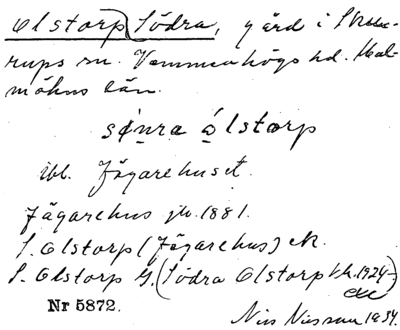 Olstorp (Södra, gård i Skurups sn. Vemmenhögs hd. Malmöhus län.
sǿnra ålstorp
ibl. Jägarehuset.
Jägarehus jb. 1881.
S. Olstorp (Jägarehus) ek.
S. Olstorp G. (Södra Olstorp kk. 1924-)
Nr 5872.
Nils Nilsson 1934.